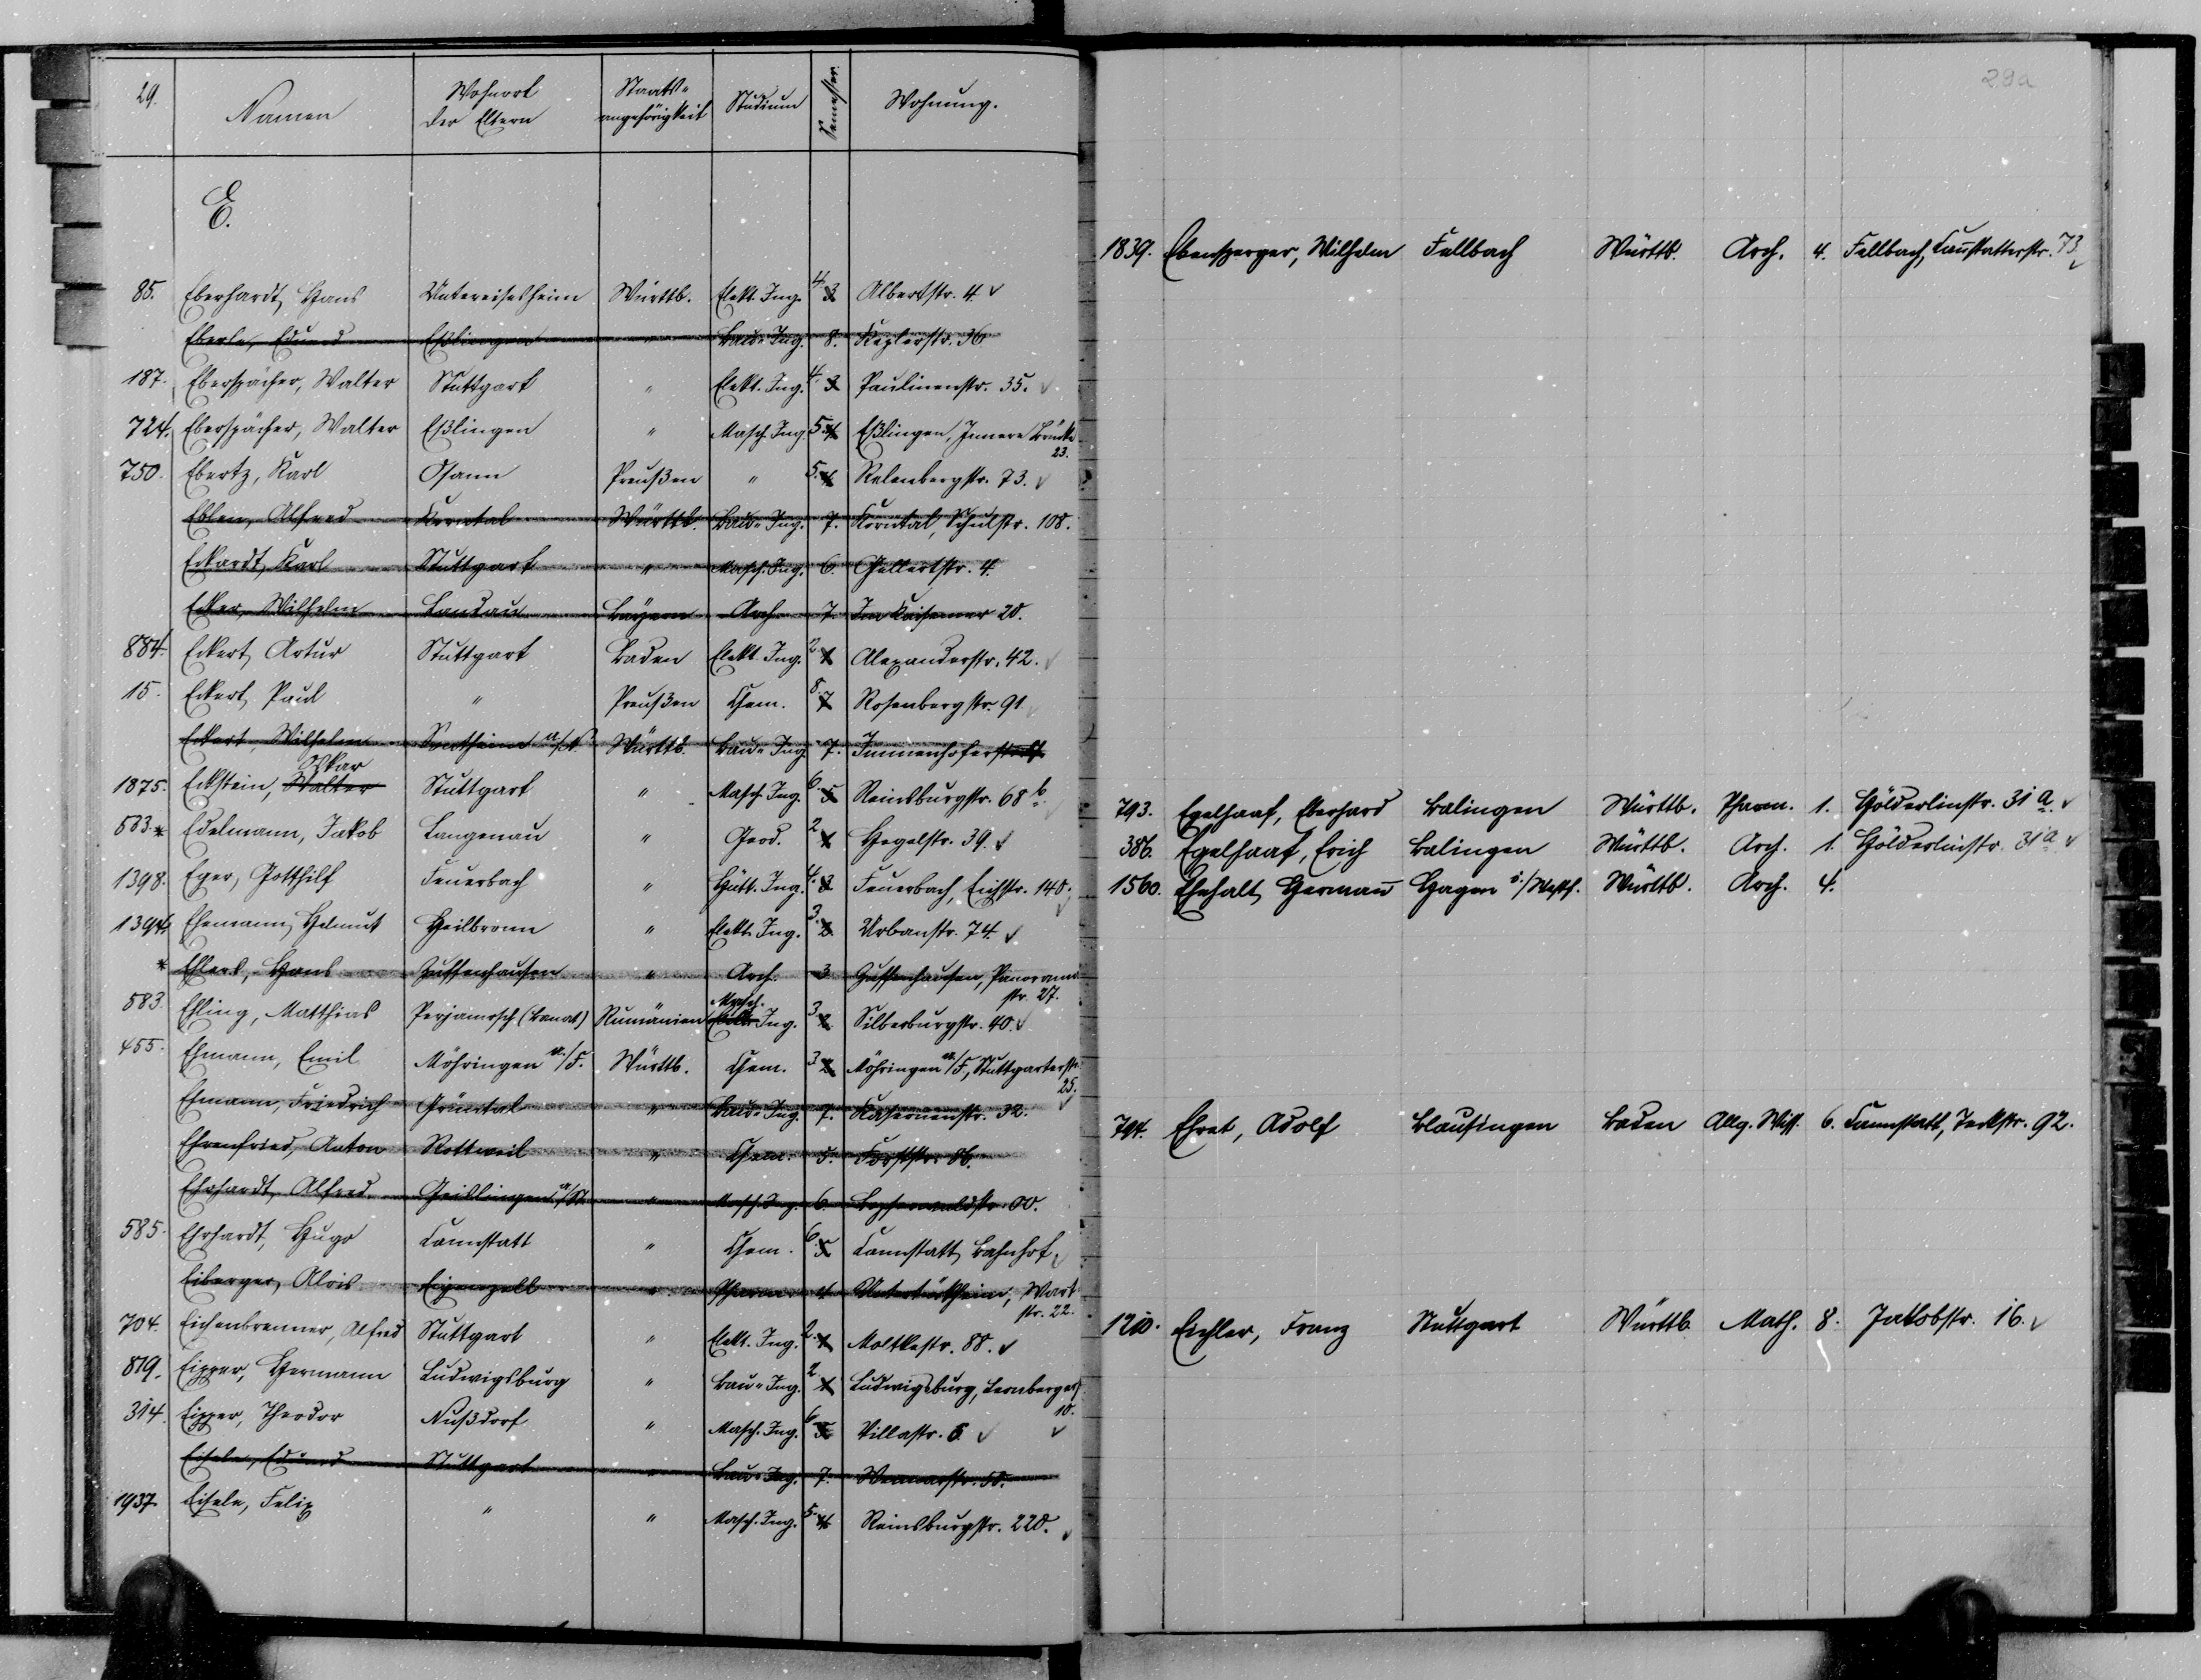 29.
Namen
Wohnort der Eltern
Staats-angehörigkeit
Studium
Semester.
Wohnung.
E.
85. Eberhardt, Hans Untereisesheim Württb. Elekt. Ing. 4. 3 Albertstr. 4
Eberle, Eduard Eßlingen " Bau-Ing. 8. Keplerstr. 36
187. Eberspächer, Walter Stuttgart " Elekt. Ing. 4. 3 Paulinenstr. 35.
724. Eberspächer, Walter Eßlingen " Masch. Ing. 5. 4 Eßlingen, Innere Brücke 23.
750. Ebertz, Karl Osann Preußen " 5. 4 Relenbergstr. 73.
Eblen, Alfred Korntal Württb. Bau-Ing. 7. Korntal, Schulstr. 108.
Eckardt, Karl Stuttgart " Masch. Ing. 6. Gellertstr. 4.
Ecker, Wilhelm Landau Bayern Arch 7. Im Kaisemer 20.
884. Eckert, Artur Stuttgart Baden Elekt. Ing. 2 1 Alexanderstr. 42.
15. Eckert, Paul " Preußen Chem. 8. 7 Rosenbergstr. 91
Eckert, Wilhelm Sontheim a/N. Württb. Bau-Ing. 7. Immenhoferstr.
1875. Eckstein, Walter Oskar Stuttgart " Masch. Ing. 6. 5 Reinsburgstr. 68 b.
583. * Edelmann, Jakob Langenau " Geod. 2. 1 Hegelstr. 39.
1398. Eger, Gotthilf Feuerbach " Hütt. Ing. 4. 3 Feuerbach, Eichstr. 140.
1394. Ehemann, Helmut Heilbronn " Elekt. Ing. 3. 2. Urbanstr. 74.
* Ehlers, Hans Zuffenhausen " Arch. 3 Zuffenhausen, Panorama str. 27.
583. Ehling, Matthias Perjamosch (Banat) Rumänien Masch. Elekt. Ing. 3 2 Silberburgstr. 40.
455. Ehmann, Emil Möhringen a./F. Württb. Chem. 3 2 Möhringen a/F, Stuttgarterstr. 25.
Ehmann, Friedrich Grüntal " Bau-Ing. 7. Kasernenstr. 32.
Ehrenfried, Anton Rottweil " Chem. 5. Forststr. 86.
Ehrhardt, Alfred Geislingen a/St " Masch. Ing. 6.
585. Ehrhardt, Hugo Cannstatt " Chem. 6. 5 Cannstatt, Bahnhof.
Eiberger, Alois Eigenzell " Pharm. 4 Untertürkheim, str. 22.
704. Eichenbrenner, Alfred Stuttgart " Elekt. Ing. 2. 1 Moltkestr. 88.
819. Eipper, Hermann Ludwigsburg " Bau-Ing. 2 1 Ludwigsburg, 10.
314. Eipper, Theodor Nußdorf " Masch. Ing. 6 5 Villastr. 6
Eisele, Eduard Stuttgart " Bau-Ing. 7.
1937. Eisele, Felix " " Masch. Ing. 5. 4 Reinsburgstr. 220.
29a
1839. Ebensperger, Wilhelm Fellbach Württb. Arch. 4. Fellbach, Cannstatterstr. 73
793. Egelhaaf, Eberhard Balingen Württb. Pharm. 1. Hölderlinstr. 31 a.
386. Egelhaaf, Erich Balingen Württb. Arch. 1. Hölderlinstr. 31 a
1560. Ehehalt, Hermann Hagen i./Westf. Württb. Arch. 4.
794. Ehret, Adolf Blansingen Baden Allg. Wiss. 6. Cannstatt, Teckstr. 92.
1210. Eichler, Franz Stuttgart Württb. Math. 8. Jakobstr. 16.